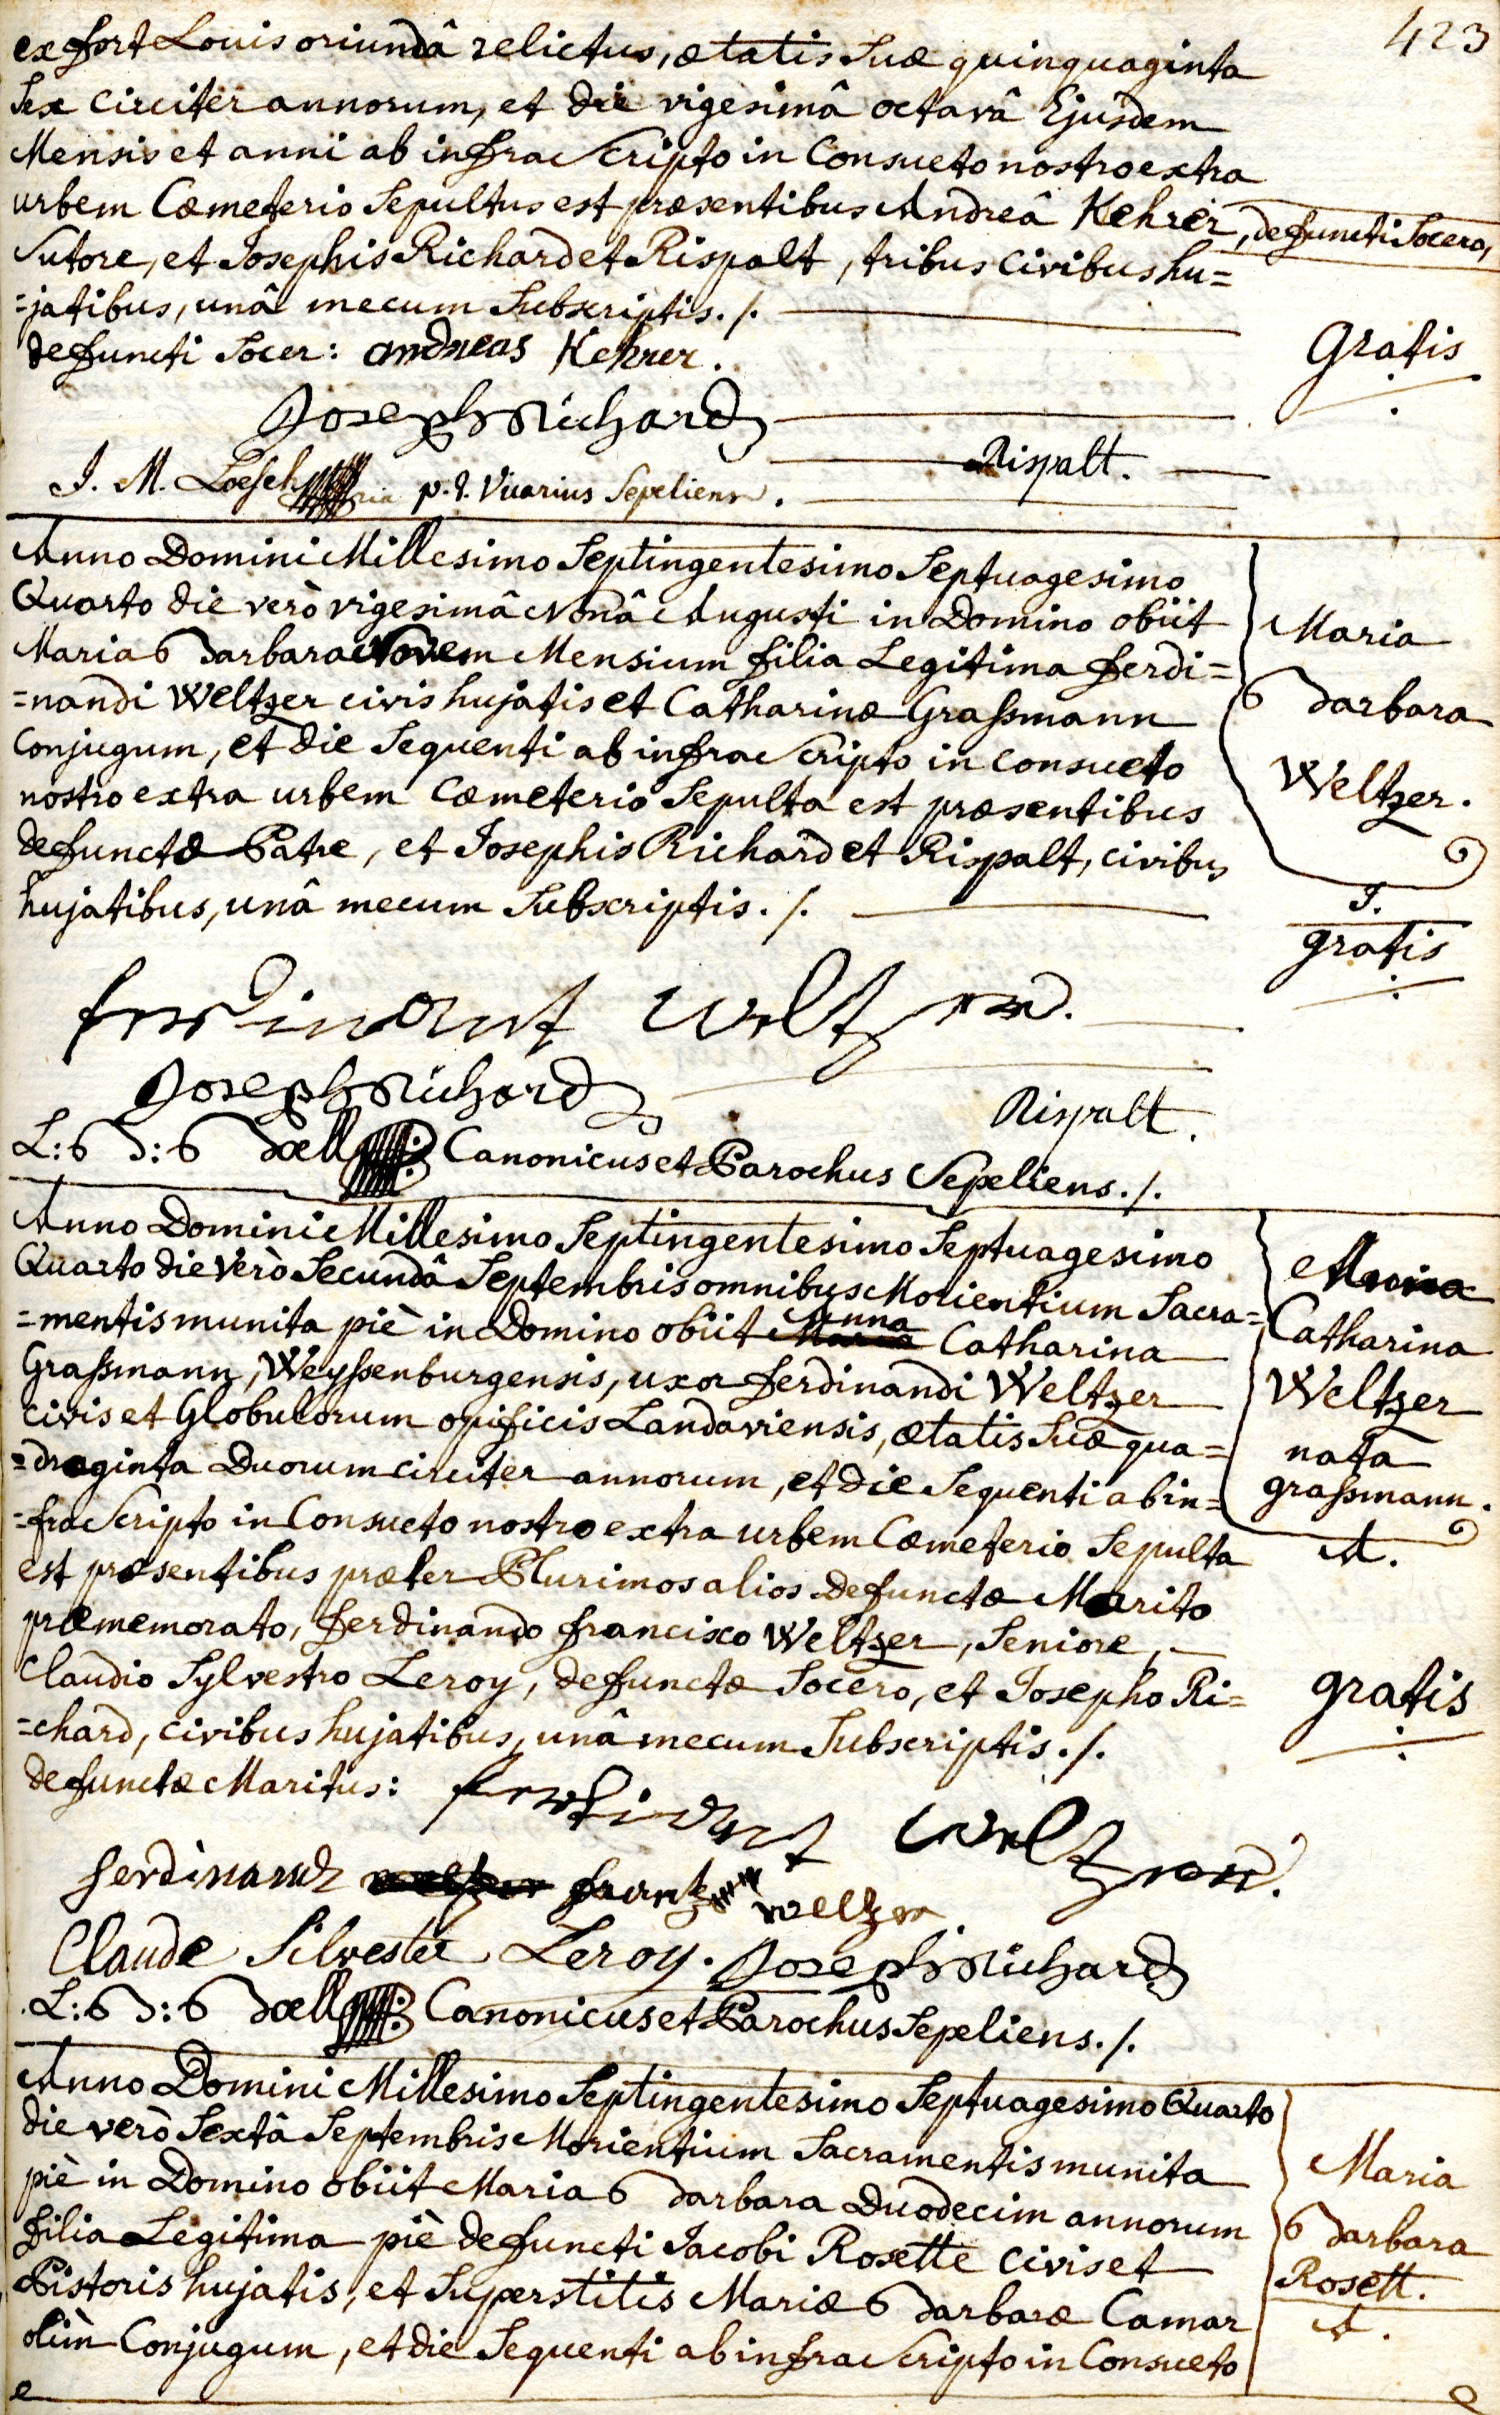 423
ex fort Louis oriundâ relictus, ætatis suæ quinquaginta
sex circiter annorum, et die vigesimâ octavâ Ejusdem
Mensis et anni ab infra scripto in Consueto nostro extra
urbem Cæmeterio Sepultus est præsentibus Andreâ Kehrer, defuncti Socero,
Sutore, et Josephis Richard et Rispalt, tribus civibus hu=
=jatibus, unâ mecum Subscriptis ./.
defuncti Socer: andreas Kehrer.
Gratis
Joseph Richard
Rispalt.
J. M. Loesch p. t. Vicarius Sepeliens.
Anno Domini Millesimo Septingentesimo Septuagesimo
Quarto die verò vigesimâ Nonâ Augusti in Domino obiit
Maria Barbara Novem Mensium filia Legitima ferdi=
=nandi Weltzer civis hujatis et Catharinæ Graßmann
Conjugum, et die Sequenti ab infra scripto in consueto
nostro extra urbem Cæmeterio Sepulta est præsentibus
defunctæ Patre, et Josephis Richard et Rispalt, civibus
hujatibus, unâ mecum Subscriptis ./.
Maria
Barbara
Weltzer.
J.
gratis
ferdinant weltzer.
Joseph Richard
Rispalt.
L: B: Boell Canonicus et Parochus Sepeliens ./.
Anno Domini Millesimo Septingentesimo Septuagesimo
Quarto die verò Secundâ Septembris omnibus Morientium Sacra=
=mentis munita piè in Domino obiit Maria Anna Catharina
Graßmann, Weyssenburgensis, uxor ferdinandi Weltzer
civis et Globulorum opificis Landaviensis, ætatis suæ qua=
=draginta Duorum circiter annorum, et die Sequenti ab in=
=fra Scripto in Consueto nostro extra urbem Cæmeterio Sepulta
est præsentibus præter Plurimos alios defunctæ Marito
præmemorato, ferdinando francisco Weltzer, Seniore,
Claudio Sylvestro Leroy, defunctæ Socero, et Josepho Ri=
=chard, civibus hujatibus, unâ mecum Subscriptis ./.
Catharina
Weltzer
nata
graßmann.
A.
gratis
defunctæ Maritus: ferdinant weltzer.
ferdinand frantz weltzer
Claude Silvester Leroy. Joseph Richard
L: B: Boell Canonicus et Parochus Sepeliens ./.
Anno Domini Millesimo Septingentesimo Septuagesimo Quarto
die verò Sextâ Septembris Morientium Sacramentis munita
piè in Domino obiit Maria Barbara Duodecim annorum
filia Legitima piè defuncti Jacobi Rosette civis et
Pistoris hujatis, et Superstitis Mariæ Barbaræ Camar
olim Conjugum, et die Sequenti ab infra scripto in Consueto
Maria
Barbara
Rosett.
A.